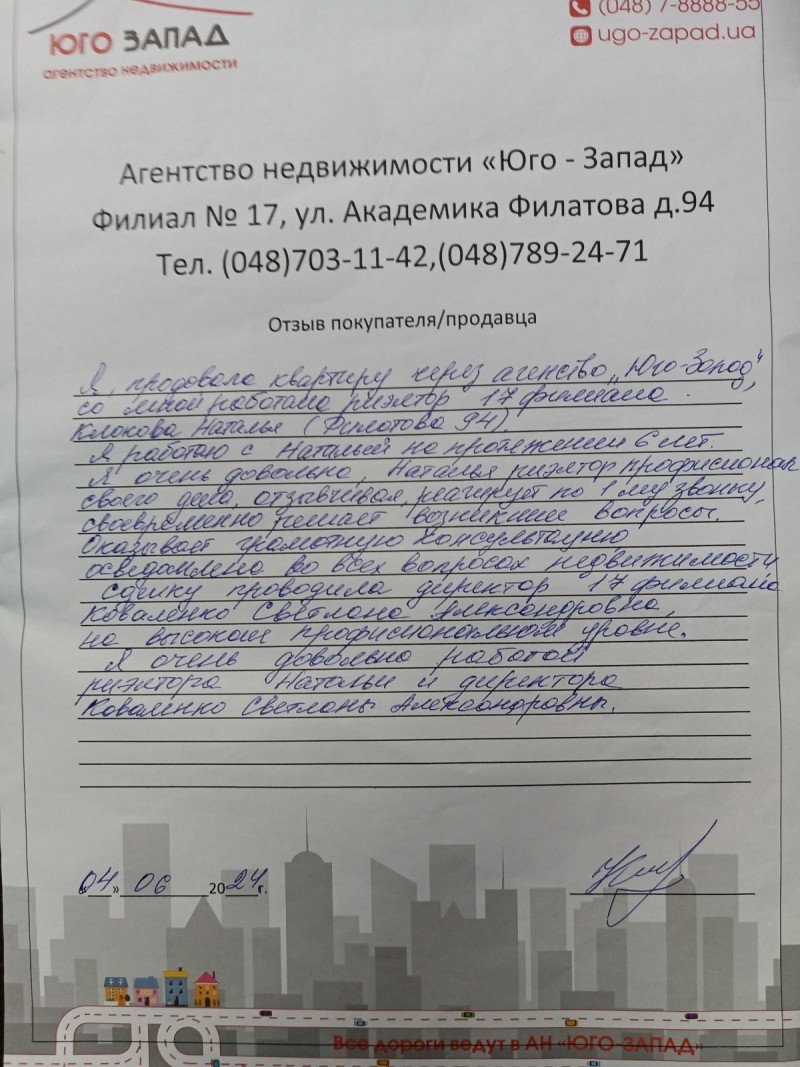 ЮГО ЗАПАД
агентство недвижимости
(048) 7-8888-55
ugo-zapad.ua
Агентство недвижимости «Юго - Запад»
Филиал № 17, ул. Академика Филатова д.94
Тел. (048)703-11-42,(048)789-24-71
Отзыв покупателя/продавца
Я, продовала квартиру через агенство „Юго-Запад",
со мной работала риэлтор 17 филиала.
Клокова Наталья (Филатова 94).
Я работаю с Натальей на протяжении 6 лет.
Я очень довольна, Наталья риэлтор профисионал
своего дела, отзывчивая, реагирует по 1 му звонку,
своевременно решает возникшие вопросы.
Оказывает грамотную консультацию
осведомлена во всех вопросах недвижимости
сделку проводила директор 17 филиала
Коваленко Светлана Александровна,
на высоком профисиональном уровне.
Я очень довольна работой
риэлтора Натальи и директора
Коваленко Светланы Александровны.
«04» 06 2024г.
Все дороги ведут в АН «ЮГО-ЗАПАД»